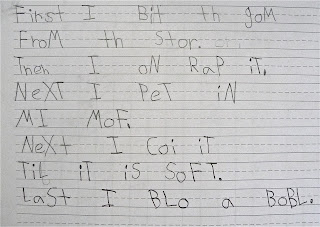 First I Bit th goM
FroM th Stor.
Then I oN RaP iT.
NeXT I PeT iN
MI MoF.
NeXt I Coi iT
TiL iT iS SoFT.
LaSt I BLo a BoBL.